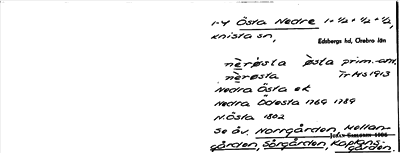 1-4 Östa Nedre 1+½+½+½,
Knista sn, Edsbergs hd, Örebro län
nèrøsta østa prim.-ant.
nèrøsta Tr Hs 1913
Nedra Östa ek
Nedra Ödesta 1769 1789
N. Östa 1802
Se äv. Norrgården, Mellan-
gården, Sörgården, Kaplans-
gården.